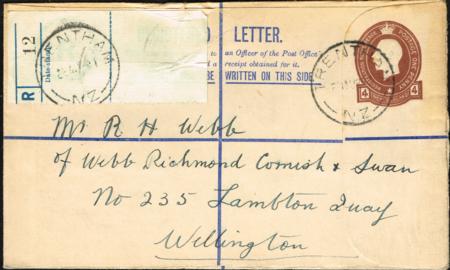 R 12
Date-stamp
TRENTHAM
NZ
D LETTER.
to an Officer of the Post Office
d a receipt obtained for it.
BE WRITTEN ON THIS SIDE
TRENTHAM
NZ
POSTAGE ONE PENNY
4 4
Mr R H Webb
of Webb Richmond Cornish & Swan
No 235 Lambton Quay
Wellington